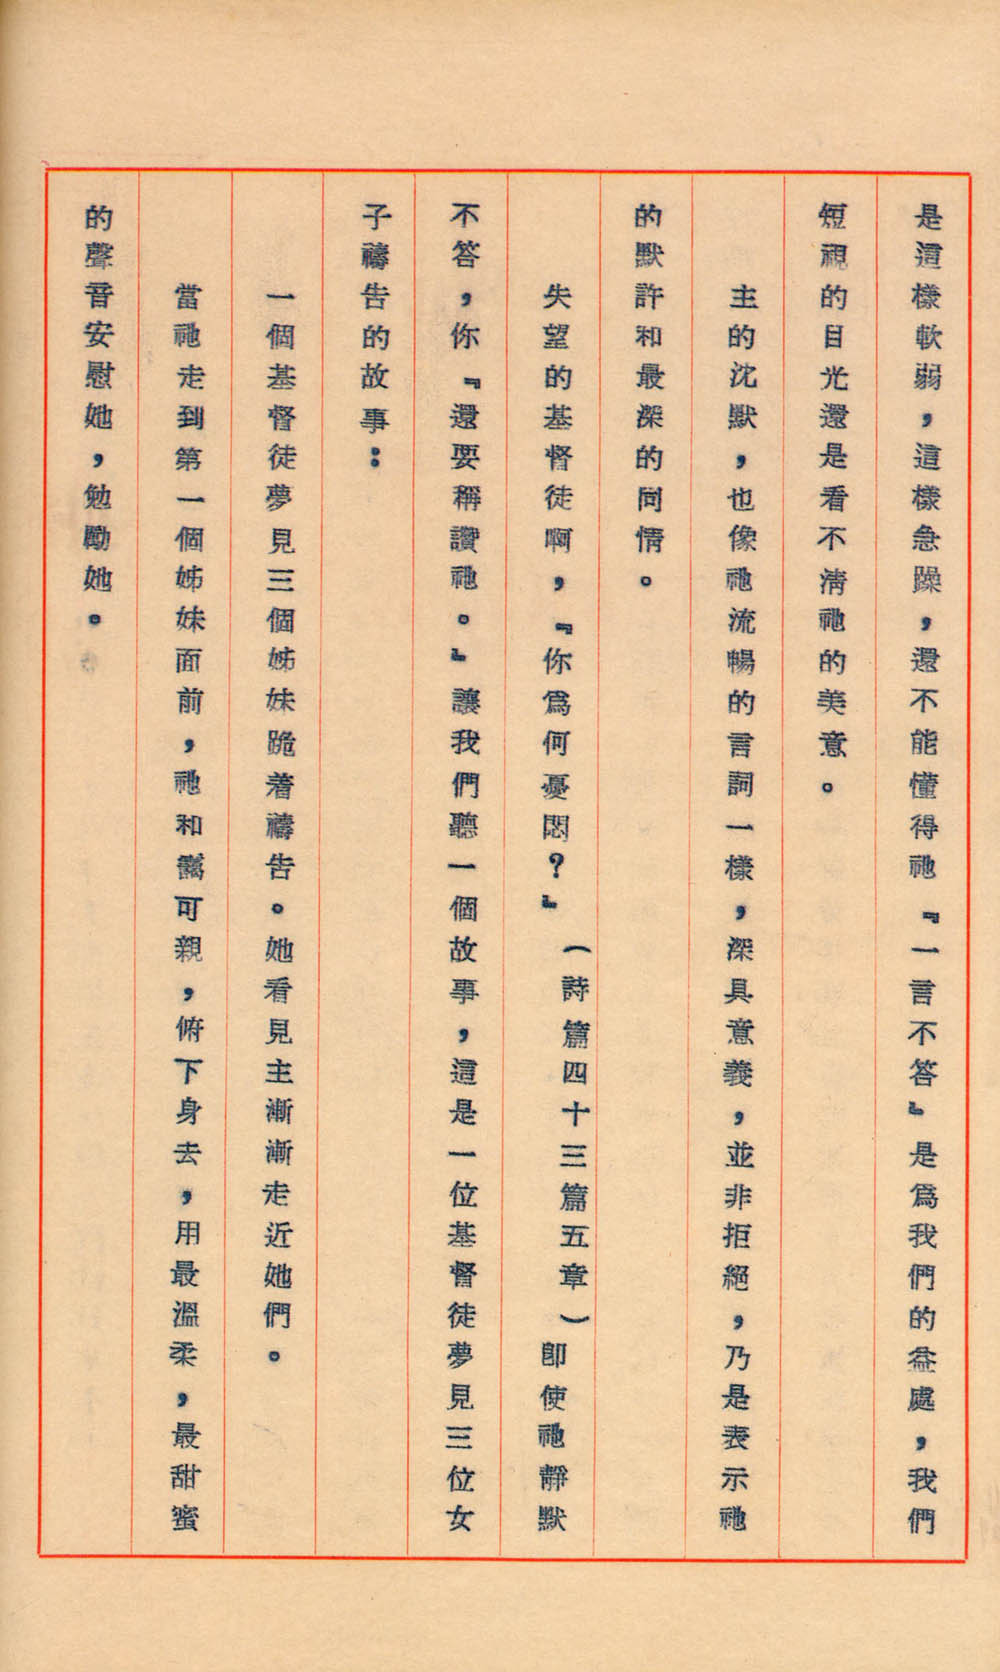 是這樣軟弱，這樣急躁，還不能懂得祂『一言不答』是爲我們的益處，我們
短視的目光還是看不淸祂的美意。
主的沈默，也像祂流暢的言詞一樣，深具意義，並非拒絕，乃是表示祂
的默許和最深的同情。
失望的基督徒啊，『你爲何憂悶？』（詩篇四十三篇五章）卽使祂靜默
不答，你『還要稱讚祂。』讓我們聽一個故事，這是一位基督徒夢見三位女
子禱告的故事：
一個基督徒夢見三個姊妹跪着禱告。她看見主漸漸走近她們。
當祂走到第一個姊妹面前，祂和藹可親，俯下身去，用最溫柔，最甜蜜
的聲音安慰她，勉勵她。